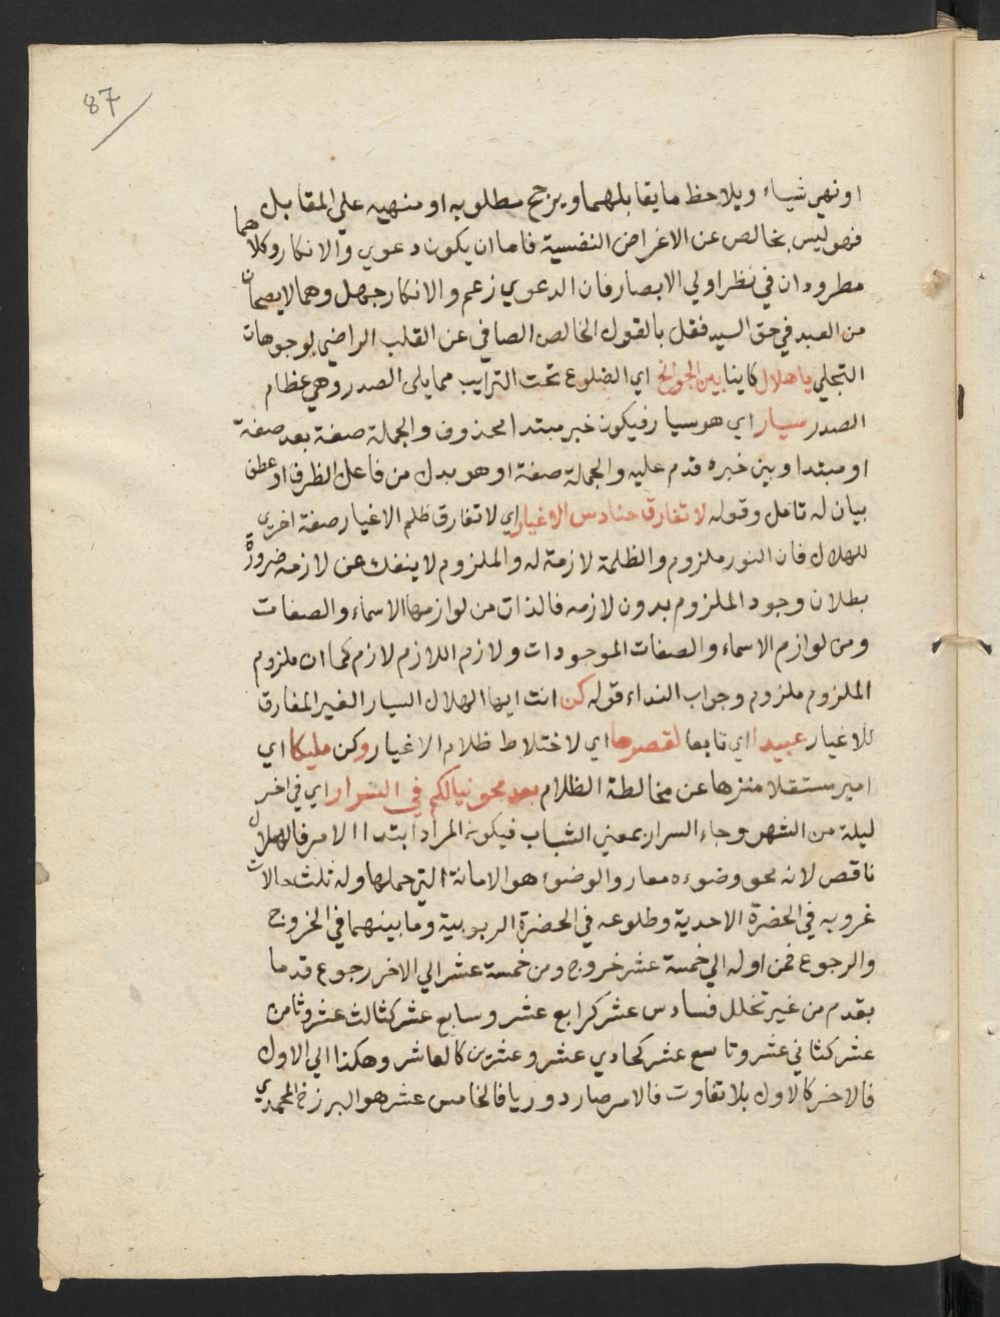 87
او نهي شياء ويلاحظ ما يقابلهما ويرجح مطلوبه او منهيه علي المقابل
فهو ليس بخالص عن الاغراض النفسية فاما ان يكون دعوي والانكار وكلا هما
مطرودان في نظر اولي الابصار فان الدعوي زعم والانكار جهل وهما لايصحان
من العبد في حق السيد فقل بالقول الخالص الصافي عن القلب الراضي بوجوهات
التجلي يا هلال كاينا بين الجوانح اي الضلوع تحت الترايب مما يلى الصدر وهي عظام
الصدر سيار اي هو سيار فيكون خبر مبتدا محذوف والجملة صفة بعد صفة
او مبتدا وبين خبره قدم عليه والجملة صفة او هو بدل من فاعل الظرف او عطف
بيان له تامل وقوله لا تفارق حنادس الاغيار اي لا تفارق ظلم الاغيار صفة اخري
للهلال فان النور ملزوم والظلمة لازمة له والملزوم لا ينفك عن لازمه ضرورة
بطلان وجود الملزوم بدون لازمه فالذات من لوازمها الاسماء والصفات
ومن لوازم الاسماء والصفات الموجودات ولازم اللازم لازم كما ان ملزوم
الملزوم ملزوم وجواب النداء قوله كن انت ايها الهلال السيار الغير المفارق
للاغيار عبيدا اي تابعا لقصرها اي لاختلاط ظلام الاغيار وكن مليكا اي
امير مستقلا منزها عن مخالطة الظلام بعد محو نيالكم في السرار اي في اخر
ليلة من الشهر وجاء السرار بمعني الشباب فيكون المراد ابتداا الامر فالهلال
ناقص لانه محو وضوءه معار والوضوء هو الامانة التي حملها وله ثلث حالات
غروبه في الحضرة الاحدية وطلوعه في الحضرة الربوبية وما بينهما في الخروج
والرجوع فمن اوله الي خمسة عشر خروج ومن خمسة عشر الي الاخر رجوع قدما
بقدم من غير تخلل فسادس عشر كرابع عشر وسابع عشر كثالث عشر وثامن
عشر كثاني عشر وتاسع عشر كحادي عشر وعشرين كالعاشر وهكذا الي الاول
فالاخر كالاول بلا تفاوت فالامر صار دوريا فالخامس عشر هو البرزخ المحمدي